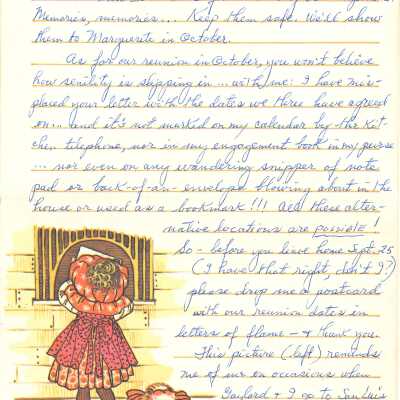 Memories, memories... Keep them safe. We'll show
them to Marguerite in October.
As for our reunion in October, you won't believe
how senility is slipping in... with me: I have mis-
placed your letter with the dates we three have agreed
on... and it's not marked on my calendar by the kit-
chen telephone, nor in my engagement book in my purse
... nor even on any wandering snipper of note
pad or back-of-an-envelope blowing about in the
house or used as a bookmark!!! All these alter-
native locations are possible!
So - before you leave home Sept. 25
(I have that right, don't I?)
please drop me a postcard
with our reunion dates in
letters of flame - & thank you.
This picture (left) reminds
me of us on occasions when
Gaylord & I go to San Luis